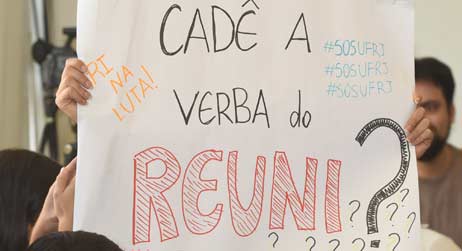 CADÊ A
#SOSUFRJ
#SOSUFRJ
#SOSUFRJ
RI
NA
LUTA!
VERBA do
REUNI?
? ? ? ? ? ?